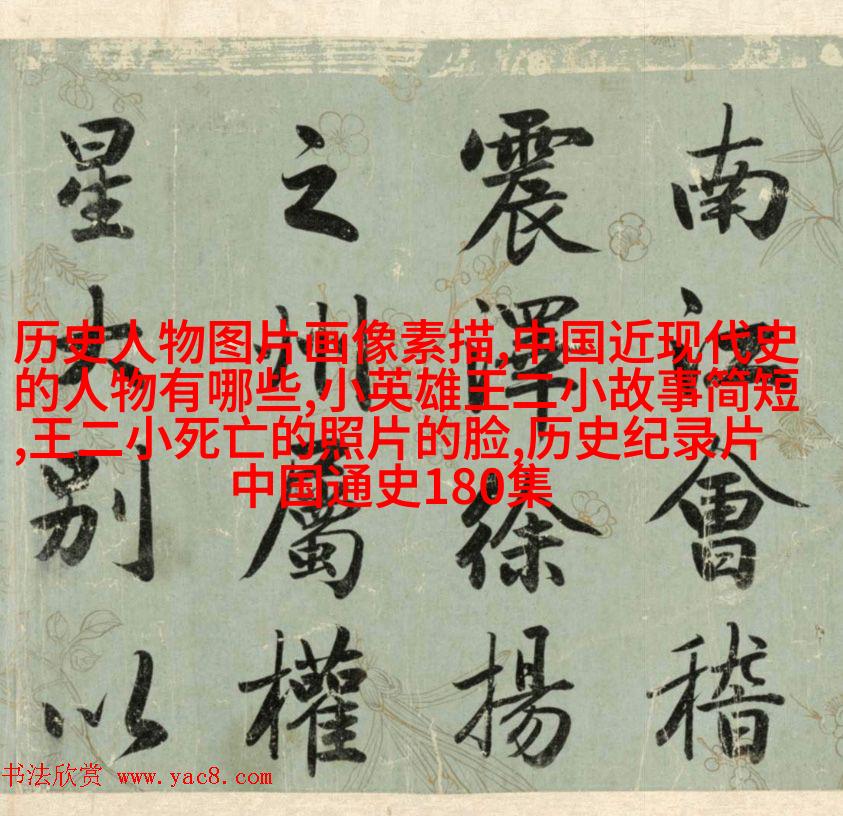 南江會稽
震澤徐揚
之州屬權
星別以
历史人物图片画像素描,中国近现代史
的人物有哪些,小英雄王二小故事简短
,王二小死亡的照片的脸,历史纪录片
中国通史180集
书法欣赏 www.yac8.com